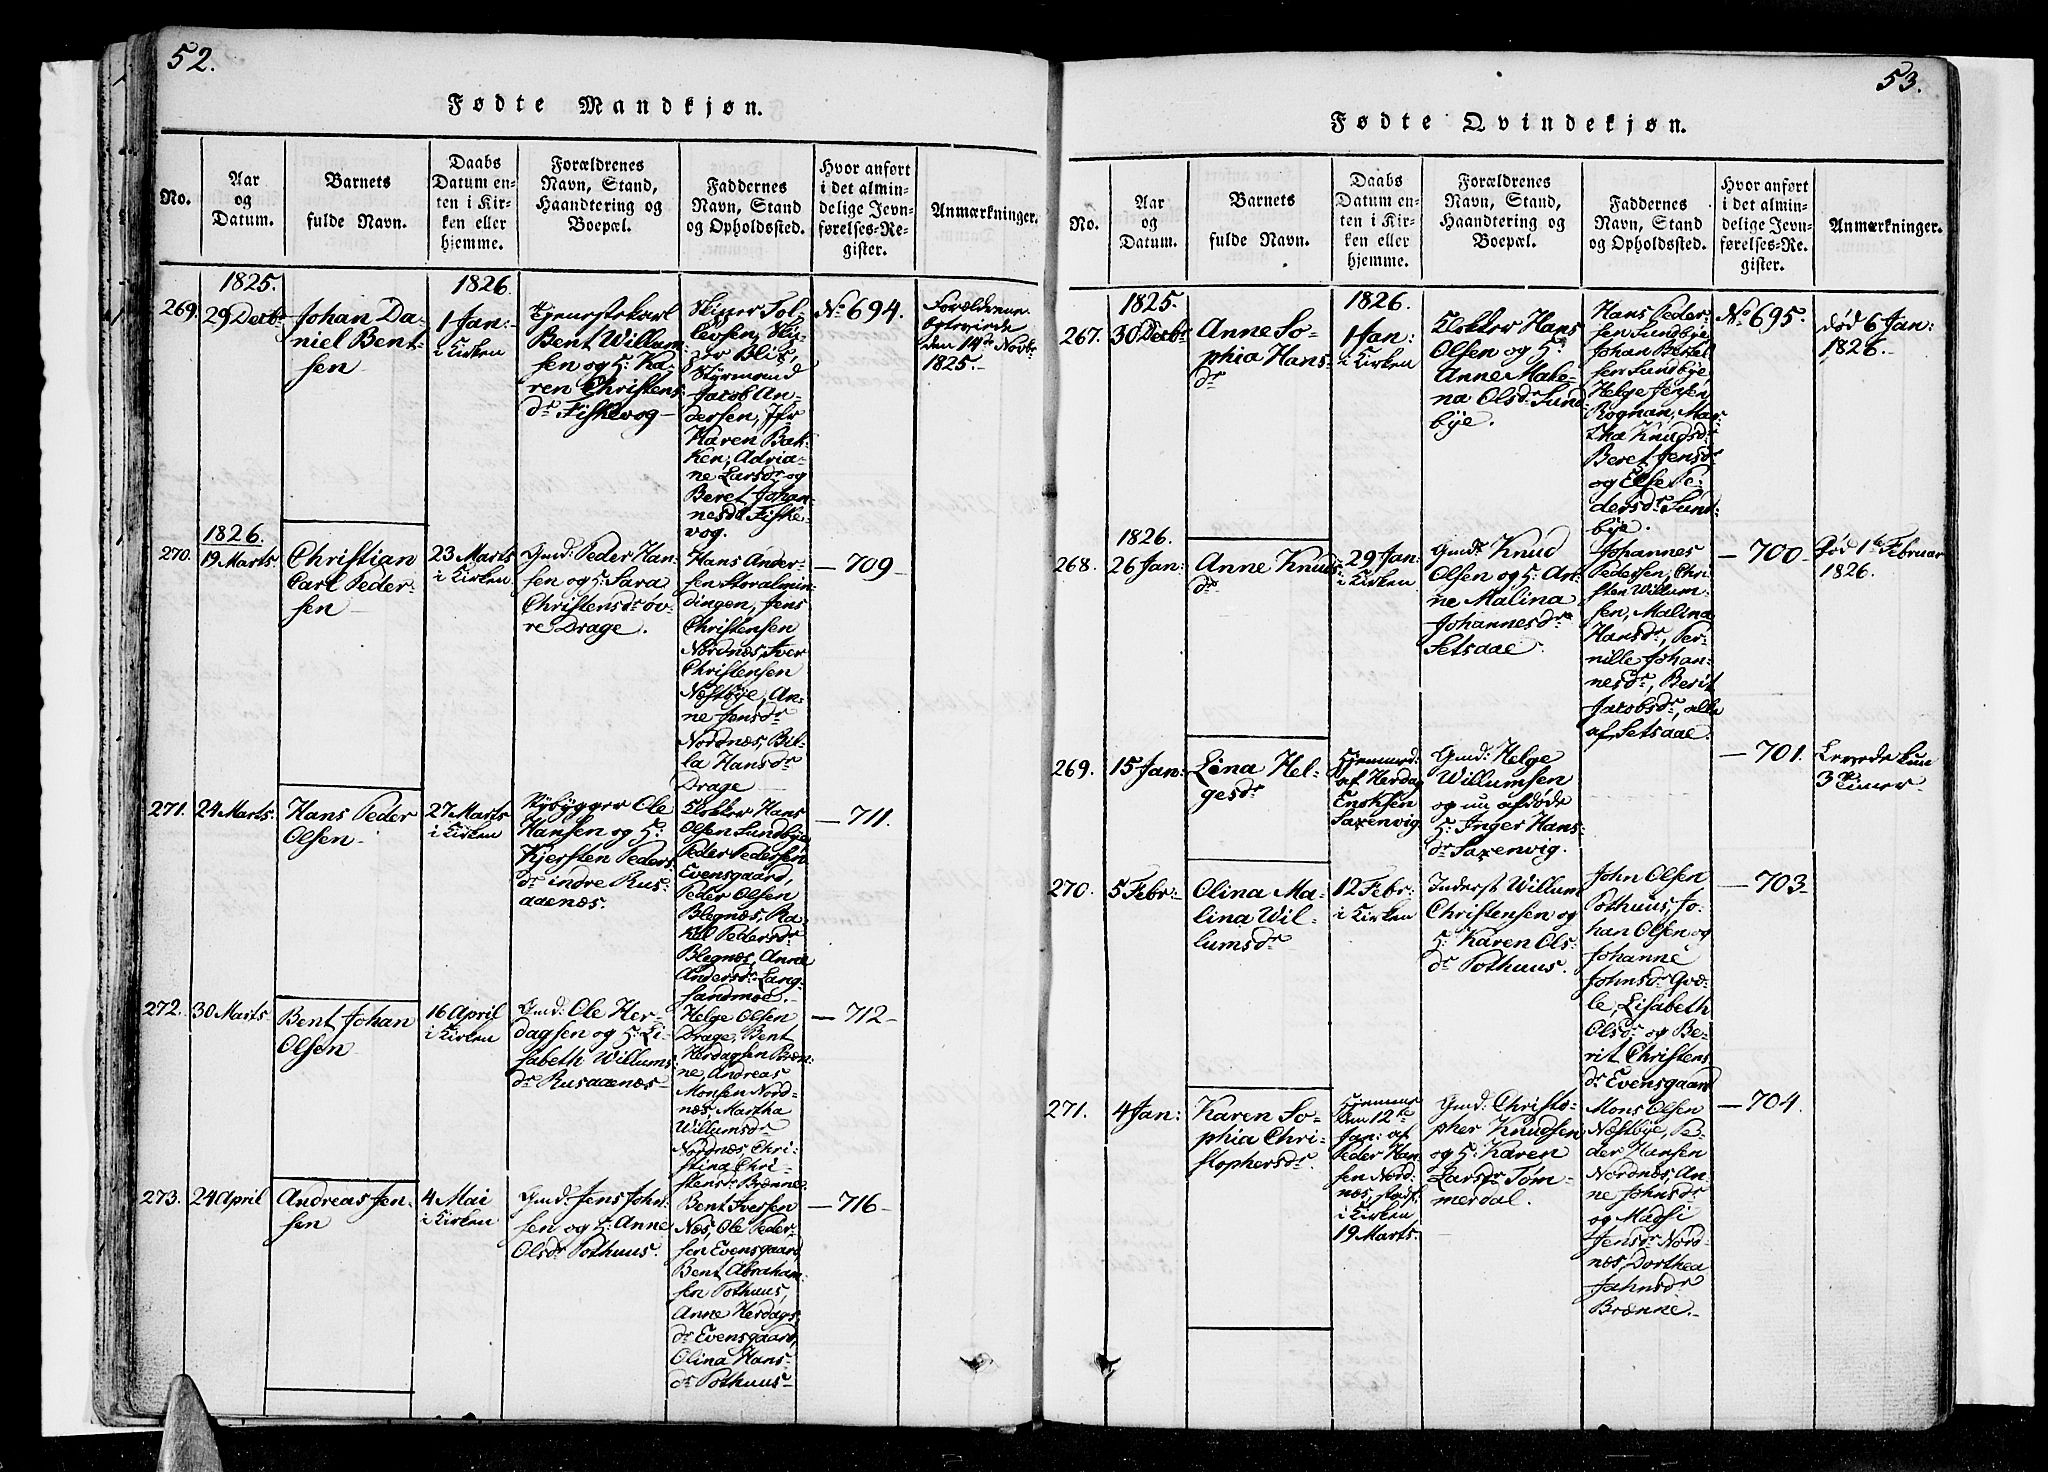 52.
Fødte Mandkjøn.
No.
Aar
og
Datum.
Barnets
fulde Navn.
Daabs
Datum en-
ten i Kir-
ken eller
hjemme.
Forældrenes
Navn, Stand,
Haandtering og
Boepæl.
Faddernes
Navn, Stand
og Opholdssted.
Hvor anført
i det almin-
delige Jevn-
førelses-Re-
gister.
Anmærkninger.
1825.
269.
29 Decbr
Johan Da-
niel Bent-
sen
1826.
1 Jan:
i Kirken
Tjenestekarl
Bent Willum-
sen og H: Ka-
ren Christens-
dr Fiskevog
Skipper Tol-
levsen,
Blix,
Styrmand
Jacob An-
dersen, Jfr
Karen Bak-
ken, Adria-
ne Larsdr og
Beret Johan-
nesdr Fiske-
vog.
No 694.
Forældrene
den 14de Novbr
1825.
1826.
270.
19 Marts
Christian
Carl Peder-
sen
23 Marts
i Kirken
Gmd: Peder Han-
sen og H: Sara
Christensdr øv-
re Drage.
Hans Ander-
sen Storalmin-
dingen, Jens
Christensen
Nordnæs, Iver
Christensen
Næstbye, An-
ne Jensdr
Nordnæs, Bil-
la Hansdr
Drage
709
271.
24 Marts
Hans Peder
Olsen
27 Marts
i Kirken
Rybygger Ole
Hansen og H:
Kjersten Peders-
dr indre Rus-
aaenæs.
Klokker Hans
Olsen Sundbye,
Peder Pedersen
Evensgaard,
Peder Olsen
Blegnæs, Ra-
kel Pedersdr
Blegnæs, Anne
Andersdr Lang-
sandmoe.
711.
272.
30 Marts
Bent Johan
Olsen
16 April
i Kirken
Gmd: Ole Her-
dagsen og H: Li-
sabeth Willums-
dr Rusaaenæs
Helge Olsen
Drage, Bent
Herdagsen Bræn-
ne, Andreas
Monsen Nord-
næs, Martha
Willumsdr
Nordnæs, Chri-
stina Chri-
stensdr Brænne
712
273.
24 April
Andreas Jen-
sen
4 Mai
i Kirken
Gmd: Jens John-
sen og H: Anne
Olsdr Pothuus.
Bent Iversen
Næs, Ole Peder-
sen Evensgaard,
Bent Abraham-
sen Pothuus,
Anne Herdags-
dr Evensgaard,
Olina Hans-
dr Pothuus
716
53.
Fødte Qvindekjøn.
No.
Aar
og
Datum.
Barnets
fulde Navn.
Daabs
Datum en-
ten i Kir-
ken eller
hjemme.
Forældrenes
Navn, Stand,
Haandtering og
Boepæl.
Faddernes
Navn, Stand
og Opholdssted.
Hvor anført
i det almin-
delige Jevn-
førelses-Re-
gister.
Anmærkninger.
1825.
267.
30 Decbr
Anne So-
phia Hans-
dr
1826.
1 Jan:
i Kirken
Klokker Hans
Olsen og H:
Anne Male-
na Olsdr Sund-
bye.
Hans Peder-
sen Sundbye
Johan Bertel-
sen Sundbye
Helge Jensen
Rognan, Mar-
tha Knudsdr
Beret Jensdr
og Else Pe-
dersdr Sund-
bye.
No 695.
død 6 Jan:
1826.
1826.
268.
26 Jan:
Anne Knuds-
dr
29 Jan:
i Kirken
Gmd: Knud
Olsen og H: An-
ne Malina
Johannesdr
Setsaae.
Johannes
Pedersen, Chri-
sten Willum-
sen, Malina
Hansdr, Per-
nille Johan-
nesdr, Berit
Jacobsdr, alle
af Setsaae.
700
død 1te Februar
1826.
269.
15 Jan:
Lena Hel-
gesdr
Hjemmed:
af Herdag
Enoksen
Saxenvig
Gmd: Helge
Willumsen
og nu afdøde
H: Inger Hans-
dr Saxenvig.
701.
Levede kun
3 Timer
270.
5 Febr:
Olina Ma-
lina Wil-
lumsdr
12 Febr:
i Kirken
Inderst Willum
Christensen og
H: Karen Ols-
dr Pothuus.
John Olsen
Pothuus, Jo-
han Olsen og
Johanne
Johnsdr Qvæ-
le, Lisabeth
Olsdr og Be-
rit Christens-
dr Evensgaard
703
271.
4 Jan:
Karen So-
phia Chri-
stophersdr
Hjemme
den 12te
Jan: af
Peder Han-
sen Nord-
næs, stadf.
i Kirken
19 Marts.
Gmd: Christo-
pher Knudsen
og H: Karen
Larsdr Tøm-
merdal.
Mons Olsen
Næstbye, Pe-
der Hansen
Nordnæs, An-
ne Johnsdr
og Madsi
Jensdr Nord-
næs, Dorthea
Jahnsdr
Brænne.
704.